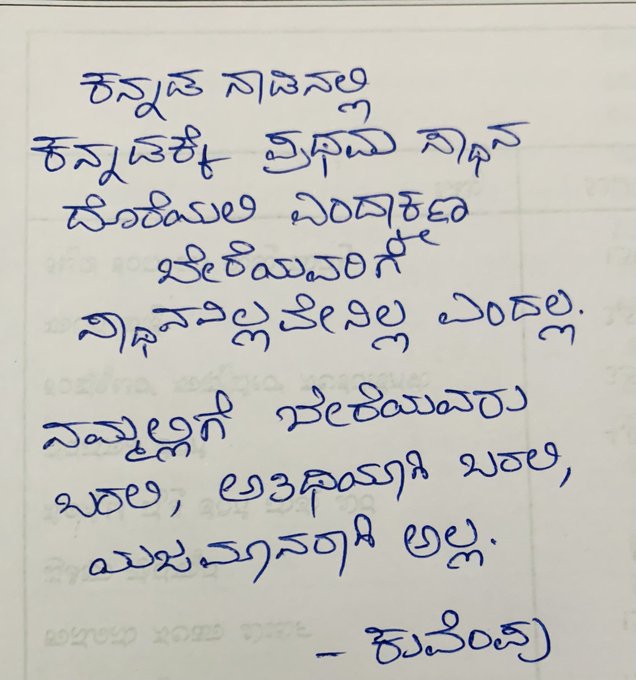 ಕನ್ನಡ ನಾಡಿನಲ್ಲಿ
ಕನ್ನಡಕ್ಕೆ ಪ್ರಥಮ ಸ್ಥಾನ
ದೊರೆಯಲಿ ಎಂದಾಕ್ಷಣ
ಬೇರೆಯವರಿಗೆ
ಸ್ಥಾನವಿಲ್ಲವೇನಿಲ್ಲ ಎಂದಲ್ಲ.
ನಮ್ಮಲ್ಲಿಗೆ ಬೇರೆಯವರು
ಬರಲಿ, ಅತಿಥಿಯಾಗಿ ಬರಲಿ,
ಯಜಮಾನರಾಗಿ ಅಲ್ಲ.
- ಕುವೆಂಪು